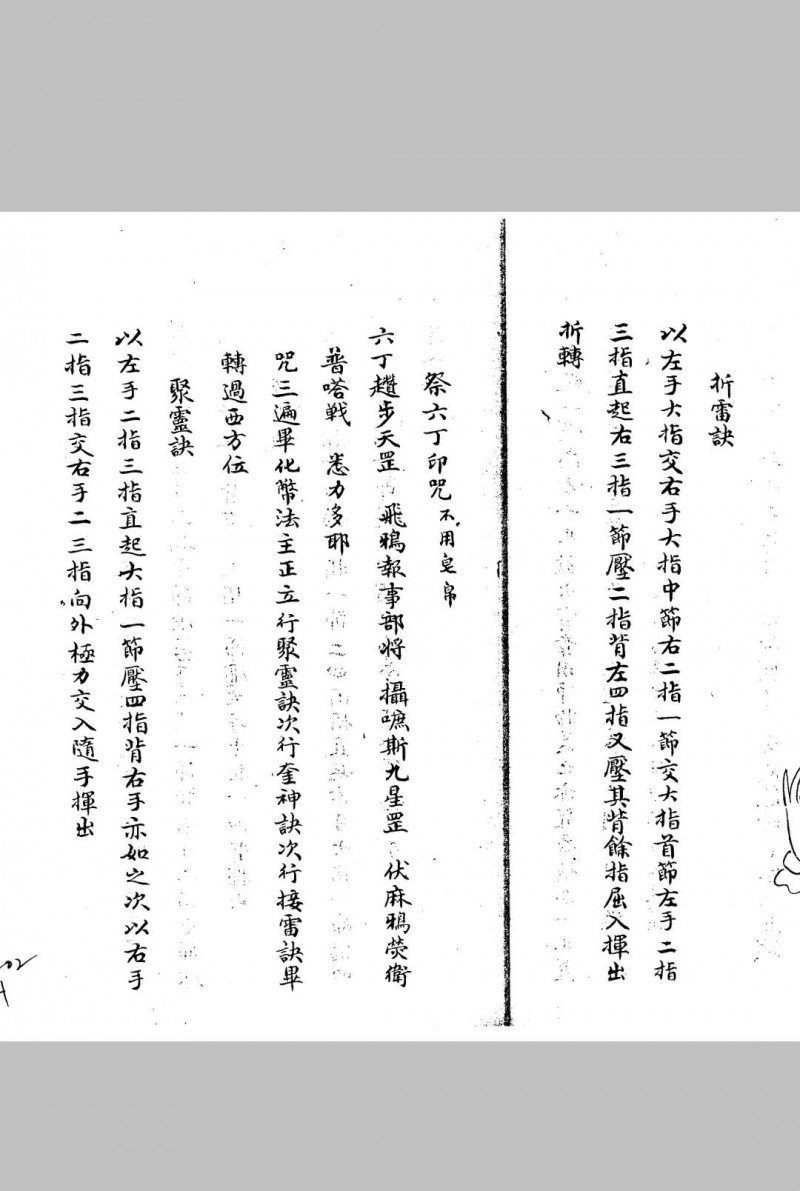 折雷訣
以左手大指交右手大指中節右二指一節交大指首節左手二指
三指直起右三指一節壓二指背左四指又壓其背餘指屈入揮出
折轉
祭六丁印咒不用皂帛
六丁趲步天罡 飛鴉報事部將 攝嗻斯九星罡 伏麻鴉熒衛
普嗒戰 悉力多耶
咒三遍畢化幣法主正立行聚靈訣次行奎神訣次行接雷訣畢
轉過西方位
聚靈訣
以左手二指三指直起大指一節壓四指背右手亦如之次以右手
二指三指交右手二三指向外極力交入隨手揮出